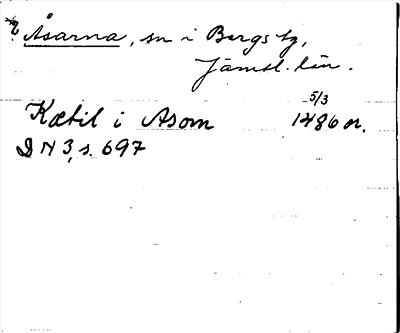 Åsarna, sn i Bergs tg,
Jämtl. län.
Kætil i Asom 5/3 1486 or.
DN 3, s. 697